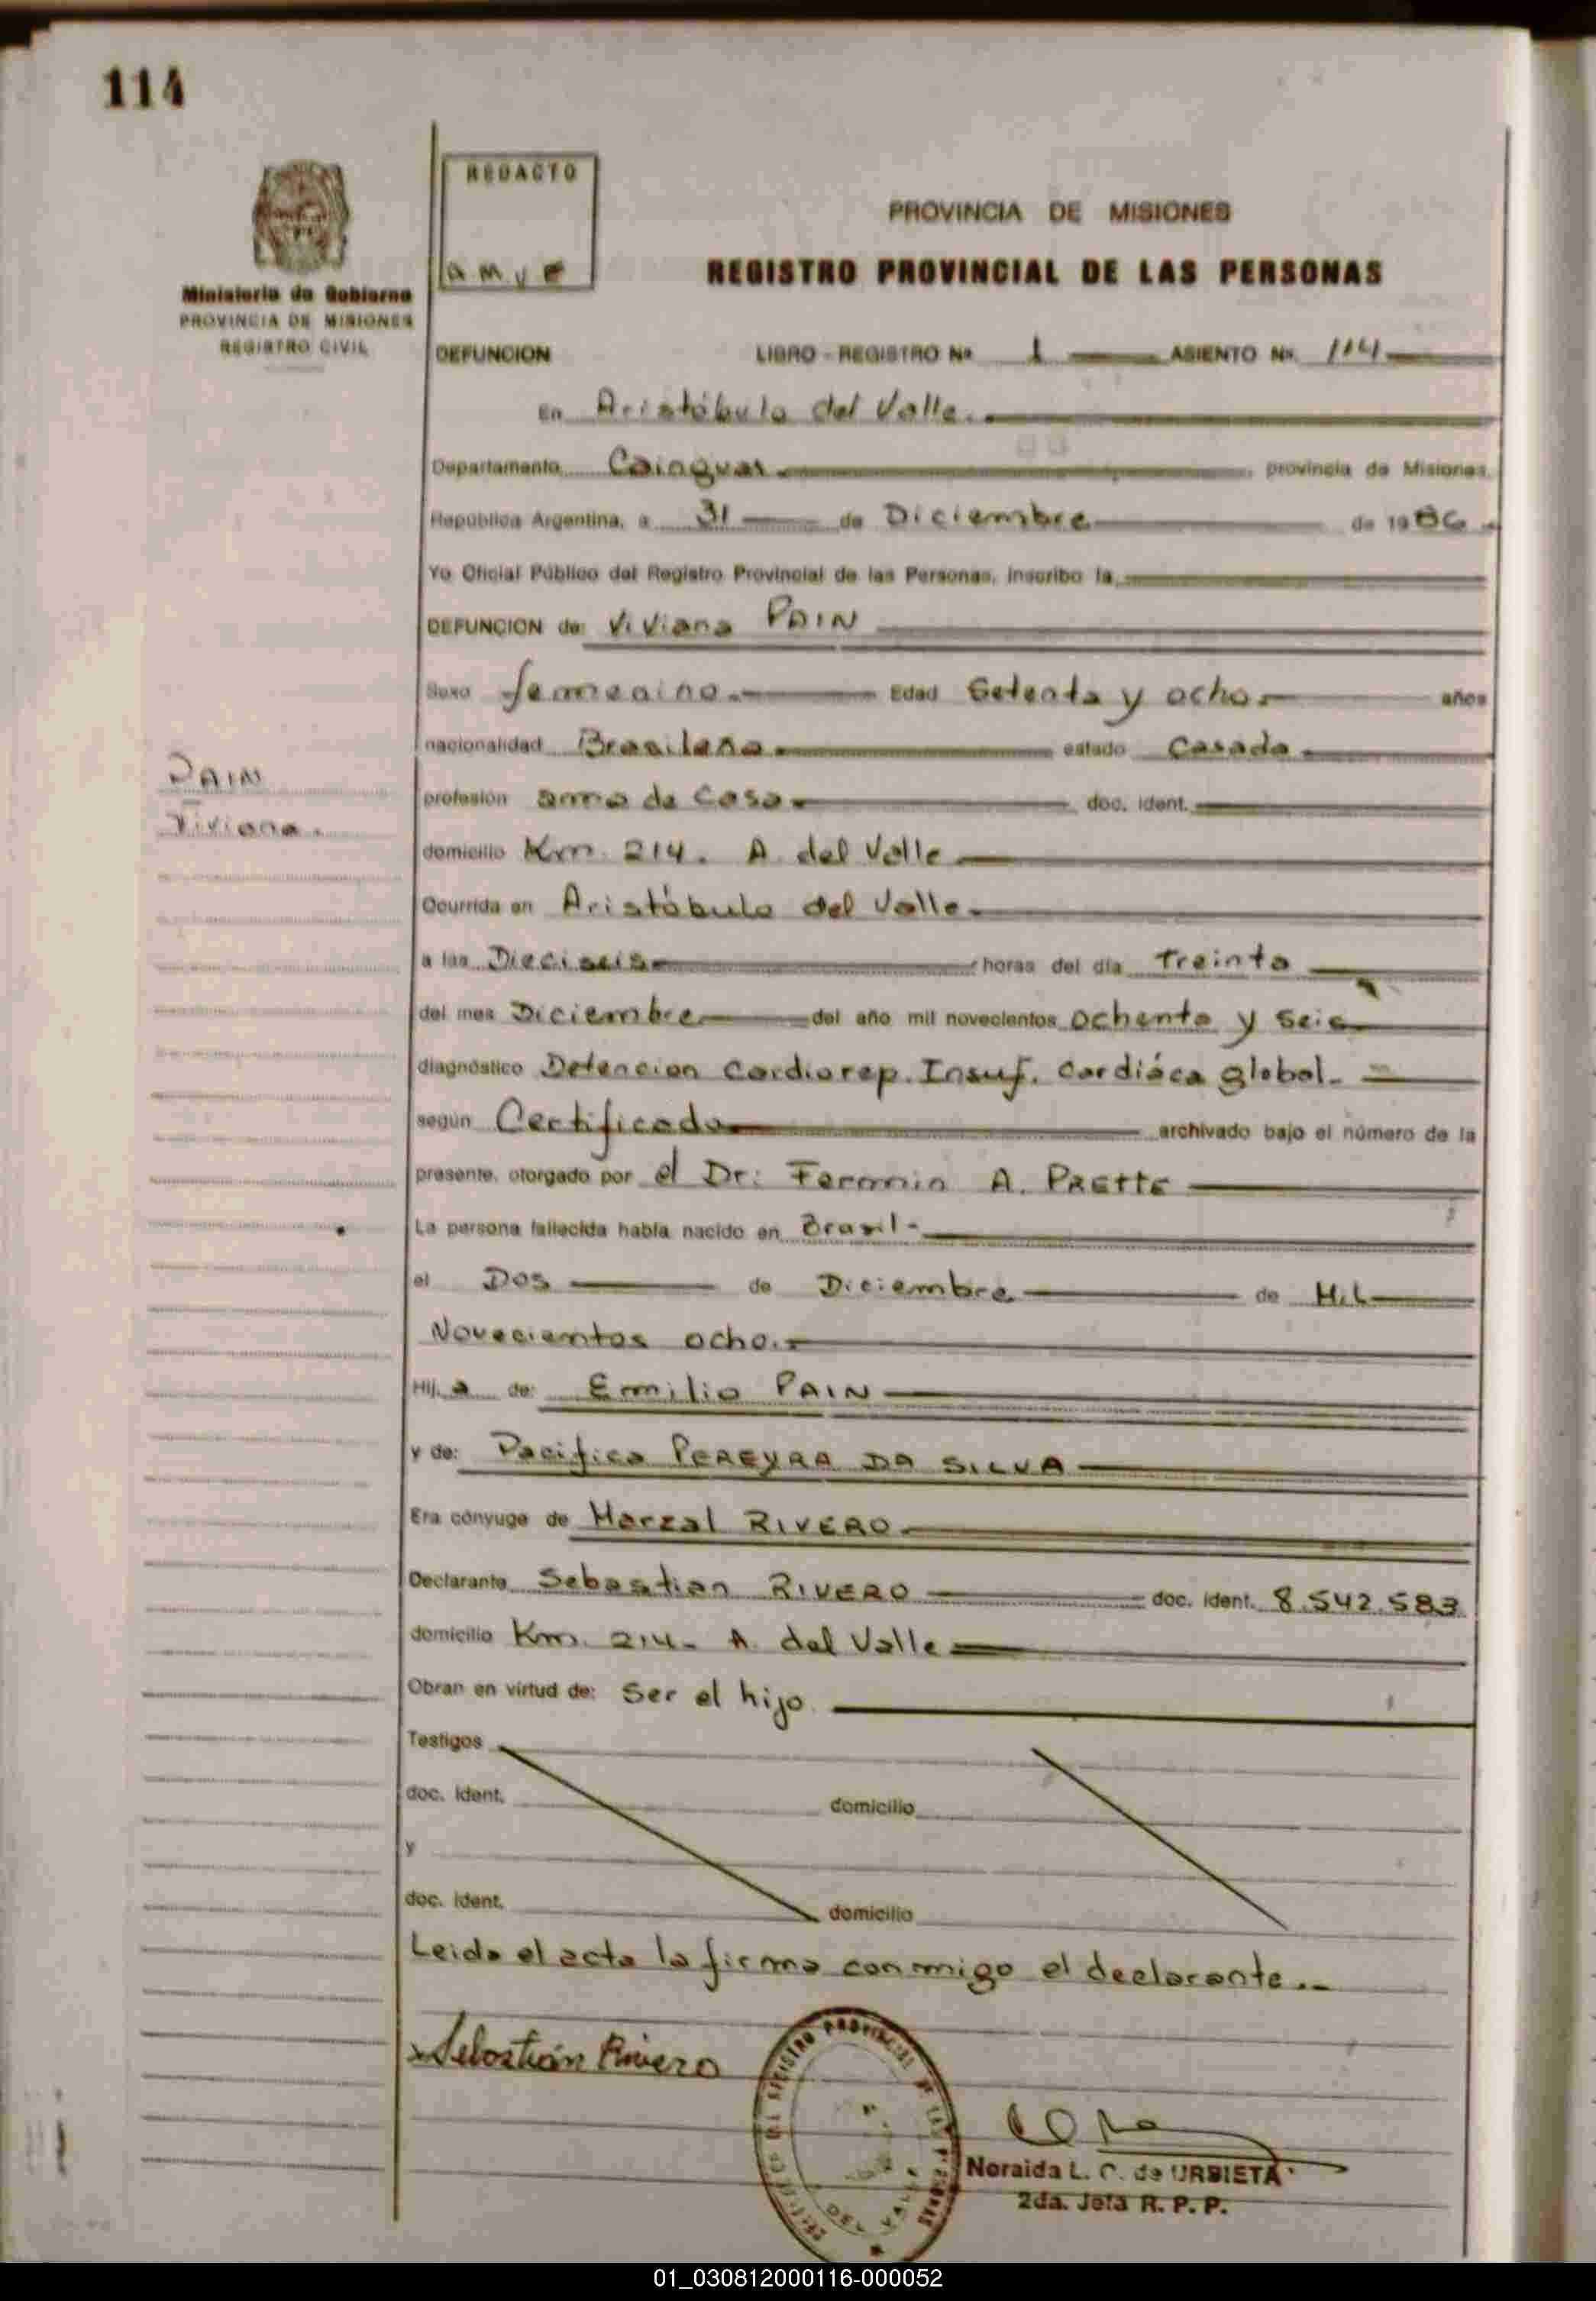 114
REDACTO
PROVINCIA DE MISIONES
REGISTRO PROVINCIAL DE LAS PERSONAS
Ministerio de Gobierno
PROVINCIA DE MISIONES
REGISTRO CIVIL
DEFUNCION LIBRO - REGISTRO Nº 1 ASIENTO Nº 114
En Aristóbulo del Valle.
Departamento Cainguas provincia de Misiones,
República Argentina, a 31 de Diciembre de 1986
Yo Oficial Público del Registro Provincial de las Personas, inscribo la
DEFUNCION de: Viviana PAIN
Sexo femenino. Edad Setenta y ocho años
nacionalidad Brasileña estado Casada
PAIN
Viviana.
profesión ama de casa doc. ident.
domicilio Km. 214. A. del Valle
Ocurrida en Aristóbulo del Valle
a las Dieciseis horas del día treinta
del mes Diciembre del año mil novecientos ochenta y seis
diagnóstico Detencion Cardiorep. Insuf. Cardiáca global.
según Certificado archivado bajo el número de la
presente, otorgado por el Dr: Fermin A.
La persona fallecida había nacido en Brasil-
el Dos de Diciembre de Mil
Novecientos ocho.
Hija de: Emilio PAIN
y de: Pacifica PEREYRA DA SILVA
Era cónyuge de Marzal RIVERO
Declarante Sebastian RIVERO doc. ident. 8.542.583
domicilio Km. 214- A. del Valle
Obran en virtud de: Ser el hijo
Testigos
doc. ident. domicilio
y
doc. ident. domicilio
Leida el acta la firma conmigo el declarante..
Sebastián Rivero
Noraida L. C. de URBIETA
2da. Jefa R. P. P.
01_030812000116-000052